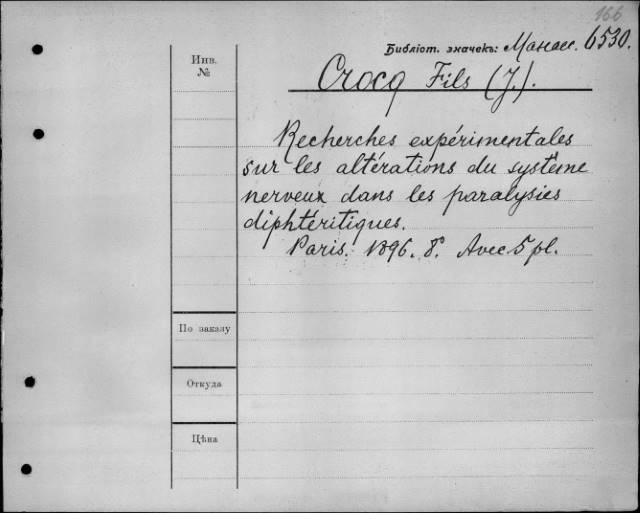 166
Библіот. значекъ: Манасс. 6530.
Инв.
№
Crocq Fils (J.).
Recherches expérimentales
sur les altérations du système
nerveux dans les paralysies
diphtéritiques.
Paris. 1896. 8°. Avec 5 pl.
По заказу
Откуда
Цѣна